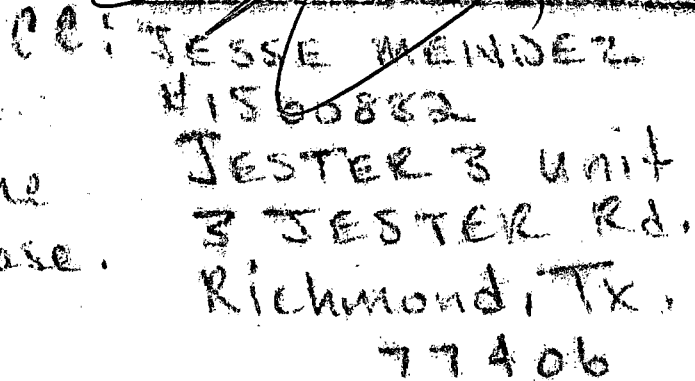 CC: JESSE MENDEZ
#1560882
JESTER 3 unit
3 JESTER Rd.
ase. Richmond, Tx.
77406